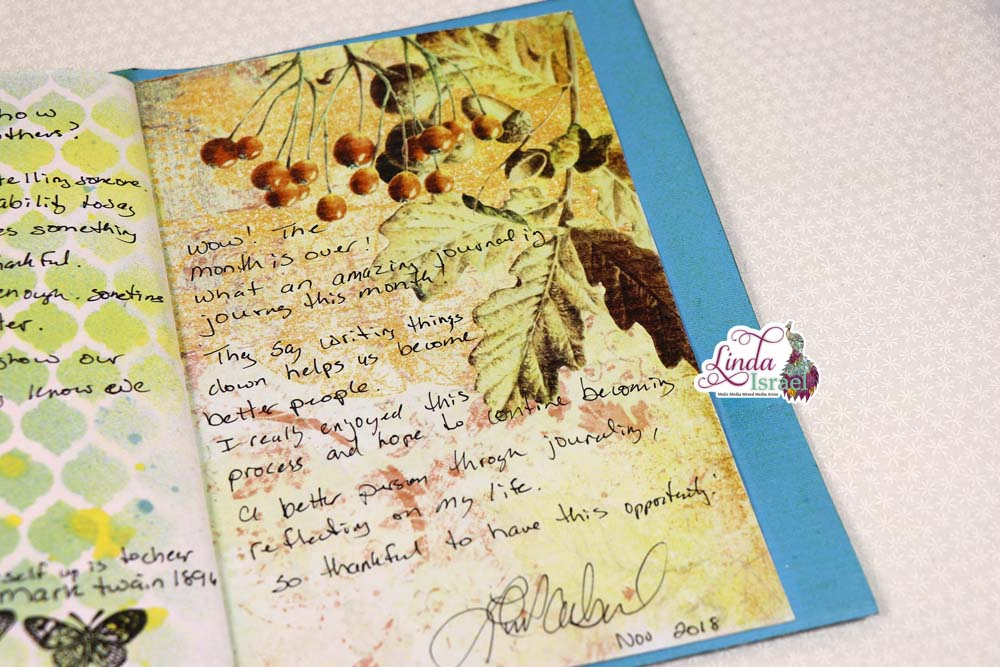 how
others?
telling someone.
ability today
es something
hankful.
enough. sometime
ter.
show our
know eve
self up is to cheer
mark twain 1896
Wow! The
month is over!
What an amazing journalig
journy this month!
They say writing things
down helps us become
better people.
I really enjoyed this
process and hope to contine becoming
a better person through journaling,
reflecting on my life.
so thankful to have this opportunity!
Nov 2018
Linda
Israel
Multi-Media Mixed Media Artist